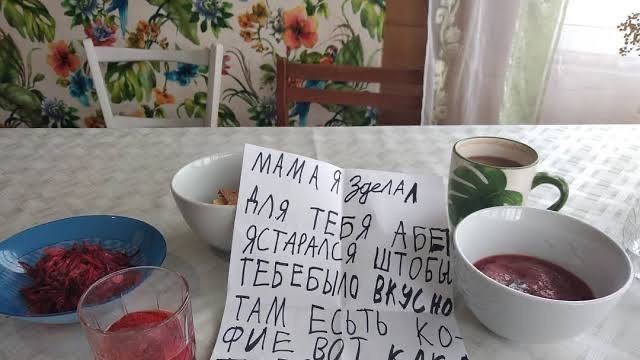 МАМА Я ЗДЕЛАЛ
ДЛЯ ТЕБЯ АБЕ
ЯСТАРАЛСЯ ШТОБЫ
ТЕБЕБЫЛО ВКУСНО
ТАМ ЕСЬТЬ КО-
ФИЕ ВОТ